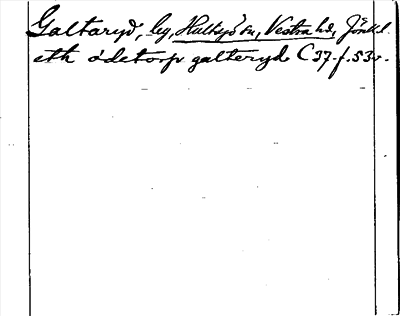 Galtaryd, lg, Hultsjö sn, Västra hd, Jönk.l.
eth ödetorp galteryd C 37.f.53v.